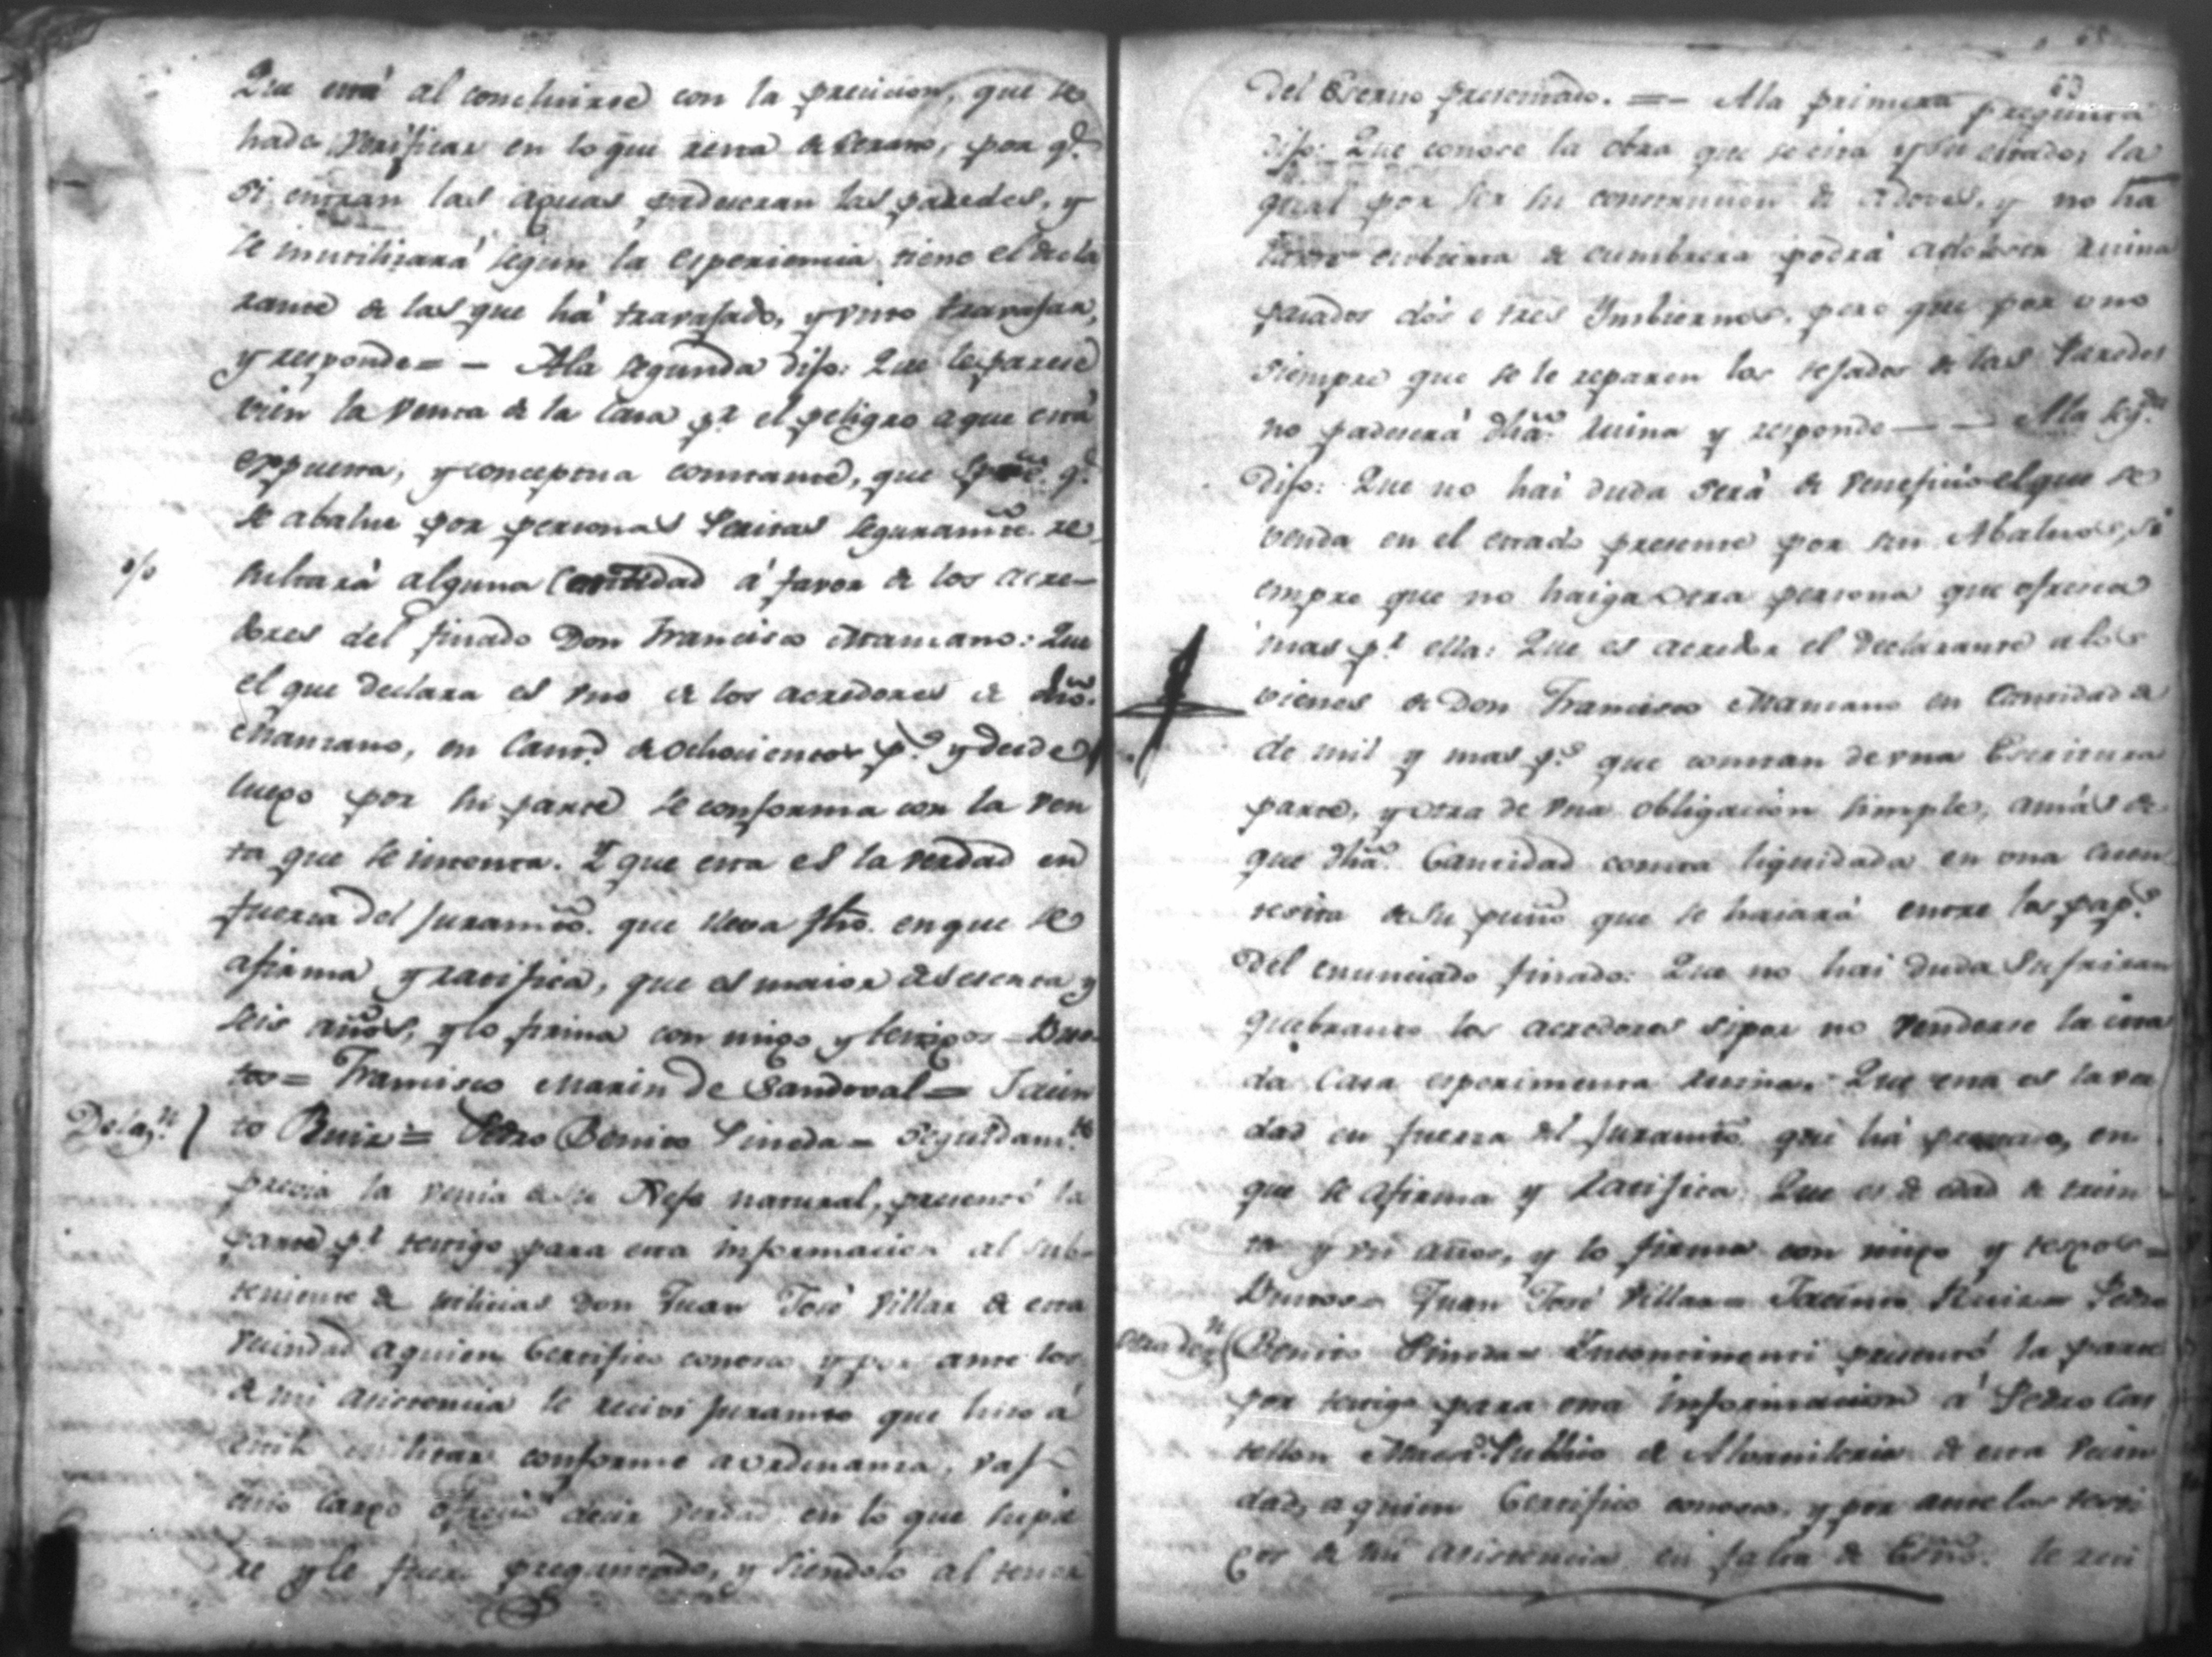 Que está al concluirse con la precicion, que se
hade verificar en loque resta de Verano, por q.e
si entran las aguas padeceran las paredes, y
se inutilizará segun la esperiencia tiene el decla
rante de las que há travajado, y visto travajar,
y responde= – Ala segunda dijo: Que le parece
vien la Venta de la Casa p.r el peligro a que está
expuesta, y conceptua constante, que q.e
se abalue por personas Peritas seguram.te re
sultará alguna Cantidad á favor de los acre-
dores del finado Don Francisco Manzano: Que
el que declara es uno de los acredores de dho.
Manzano, en Cantd. de ochocientos p.s y desde
luego por su parte se conforma con la ven
ta que se intenta. Y que esta es la verdad en
fuerza del Juramto. que lleva fho. en que se
afirma y ratifica, que es maior de sesenta y
seis años, y lo firma con migo y testigos = Bus
tos = Francisco Marin de Sandoval = Jacin
to Ruiz = Pedro Benito Pineda = Seguidam.te
previa la venia de su Jefe natural, presentó la
parte p.r testigo para esta informacion al Sub-
teniente de Milicias Don Juan José Villar de esta
Vecindad a quien Certifico conosco y por ante los
de mi asistencia le recivi juramto que hizo á
estilo militar conforme a ordenanza, vajo
cuio cargo ofreció decir verdad en lo que supie
re y le fuere preguntado, y siendolo al tenor
63
del Escrito presentado. =– Ala primera pregunta
dijo: Que conoce la obra que se cita y su estado, la
qual por ser su construccion de adoves, y no ha
cubierta de cumbrera podrá adolecer ruina
pasados dós o tres Ymbiernos, pero que por uno
siempre que se le reparen los tejados de las Paredes
no padecerá dha. ruina y responde – – Ala Seg.da
dijo: Que no hai duda será de veneficio el que se
venda en el estado presente por sus Abaluos, si
empre que no haiga otra persona que ofresca
mas p.r ella: Que es acredor el Declarante a los
vienes de Don Francisco Manzano en Cantidad de
de mil y mas p.s que constan de una Escritura
parte, y otra de una obligacion simple, amás de
que dha. Cantidad consta liquidada en una Cuen
tesita de su puño que se hallará entre los pap.s
del enunciado finado: Que no hai duda sufriran
quebranto los acredores si por no venderse la cita
da Casa esperimenta ruina. Que esta es la ver
dad en fuerza del juramto. que há prestado, en
que se afirma y ratifica. Que es de edad de trein
ta y un años, y lo firma con migo y testigos =
Bustos = Juan José Villar = Jacinto Ruiz = Pedro
Benito Pineda = Yncontinenti presentó la parte
por testigo para esta informacion á Pedro Cas
tellon Maestro Publico de Alvanileria de esta Vecin
dad, a quien Certifico conosco, y por ante los testi
gos de mi asistencia en falta de Essno. le reci